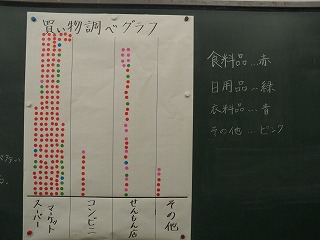 買い物調べグラフ
スーパー
マーケット
コンビニ
せんもん店
その他
食料品…赤
日用品…緑
衣料品…青
その他…ピンク